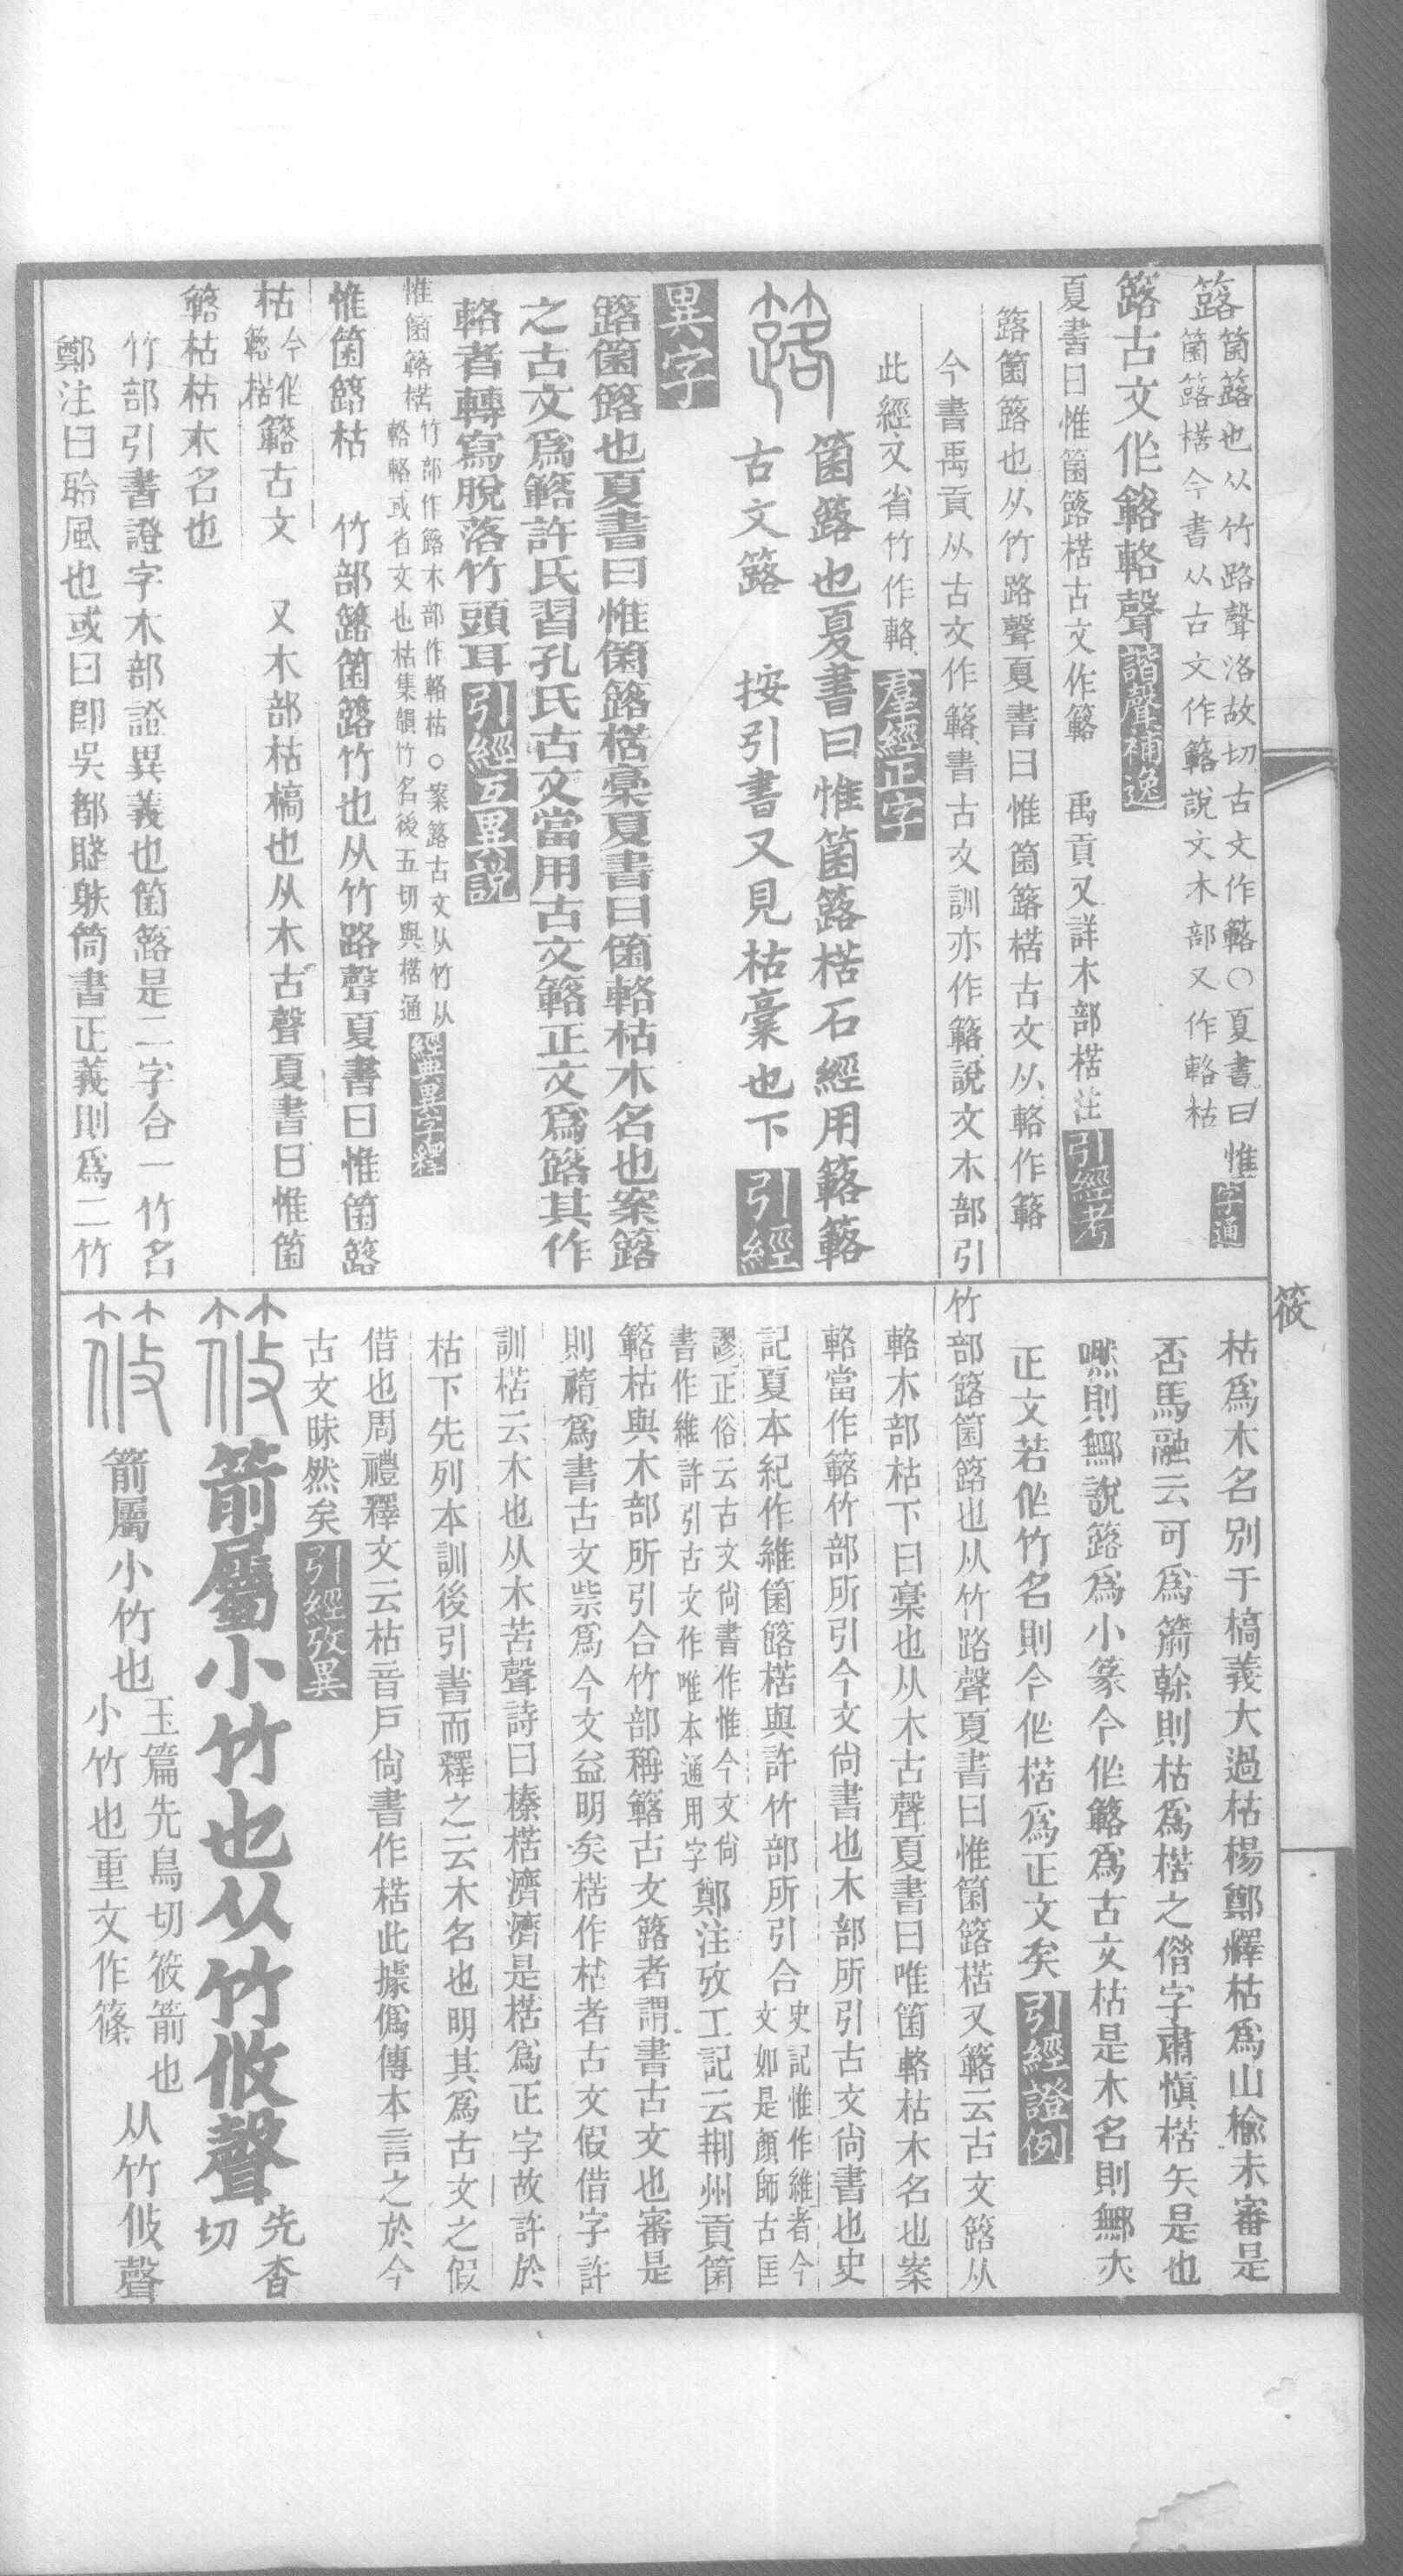 簬箘簬也从竹路聲洛故切古文作簵○夏書曰惟
箘簬楛今書从古文作簵說文木部又作輅枯
字通
簬古文作簵輅聲諧聲補逸
夏書曰惟箘簬楛古文作簵　禹貢又詳木部楛注引經考
簬箘簬也从竹路聲夏書曰惟箘簬楛古文从輅作簵
今書禹貢从古文作簵書古文訓亦作簵說文木部引
此經文省竹作輅羣經正字
箘簬也夏書曰惟箘簬楛石經用簵簵
古文簬　按引書又見枯槀也下引經
異字
簬箘簬也夏書曰惟箘簬楛槀夏書曰箘輅枯木名也案簬
之古文爲簵許氏習孔氏古文當用古文簵正文爲簬其作
輅者轉寫脫落竹頭耳引經互異說
惟箘簵楛
竹部作簬木部作輅枯○案簬古文从竹从
輅輅或省文也枯集韻竹名後五切與楛通經典異字釋
惟箘簬枯　竹部簬箘簬竹也从竹路聲夏書曰惟箘簬
枯今作簵楛簵古文　又木部枯槁也从木古聲夏書曰惟箘
簵枯枯木名也
竹部引書證字木部證異義也箘簬是二字合一竹名
鄭注曰聆風也或曰卽吳都賦射筒書正義則爲二竹
筱
枯爲木名別于槁義大過枯楊鄭釋枯爲山榆未審是
否馬融云可爲箭榦則枯爲楛之僭字肅愼楛矢是也
嘫則鄦說簬爲小篆今作簵爲古文枯是木名則鄦夾
正文若作竹名則今作楛爲正文矣引經證例
竹部簬箘簬也从竹路聲夏書曰惟箘簬楛又簵云古文簬从
輅木部枯下曰槀也从木古聲夏書曰唯箘輅枯木名也案
輅當作簵竹部所引今文尙書也木部所引古文尙書也史
記夏本紀作維箘簬楛與許竹部所引合
史記惟作維者今
文如是顏師古匡
謬正俗云古文尙書作惟今文尙
書作維許引古文作唯本通用字
鄭注攷工記云荆州貢箘
簵枯與木部所引合竹部稱簵古文簬者謂書古文也審是
則䅜爲書古文祡爲今文益明矣楛作枯者古文假借字許
訓楛云木也从木苦聲詩曰榛楛濟濟是楛爲正字故許於
枯下先列本訓後引書而釋之云木名也明其爲古文之假
借也周禮釋文云枯音戶尙書作楛此據僞傳本言之於今
古文昧然矣引經攷異
箭屬小竹也从竹攸聲先杳切
箭屬小竹也
玉篇先鳥切筱箭也
小竹也重文作篠
从竹攸聲